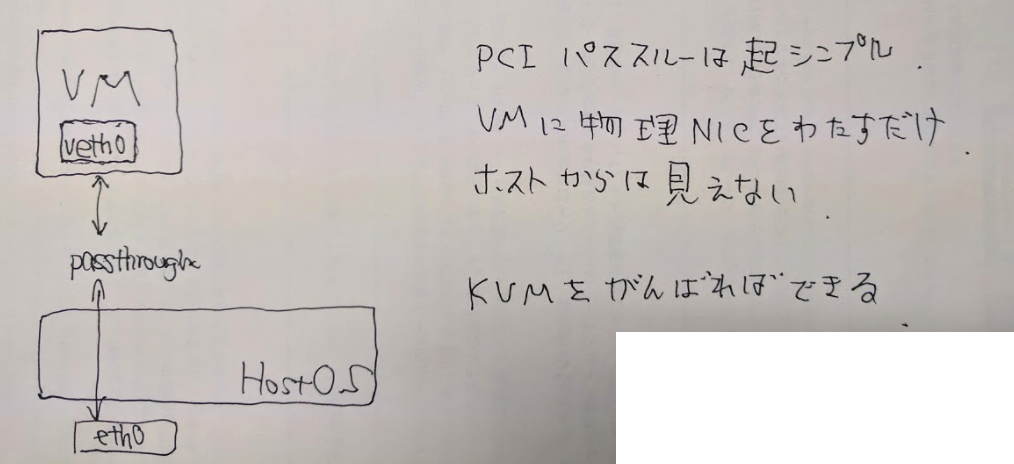 VM
veth0
passthrough
HostOS
eth0
PCI パススルーは起シンプル.
VMに物理NICをわたすだけ.
ホストからは見えない.
KVMをがんばればできる.